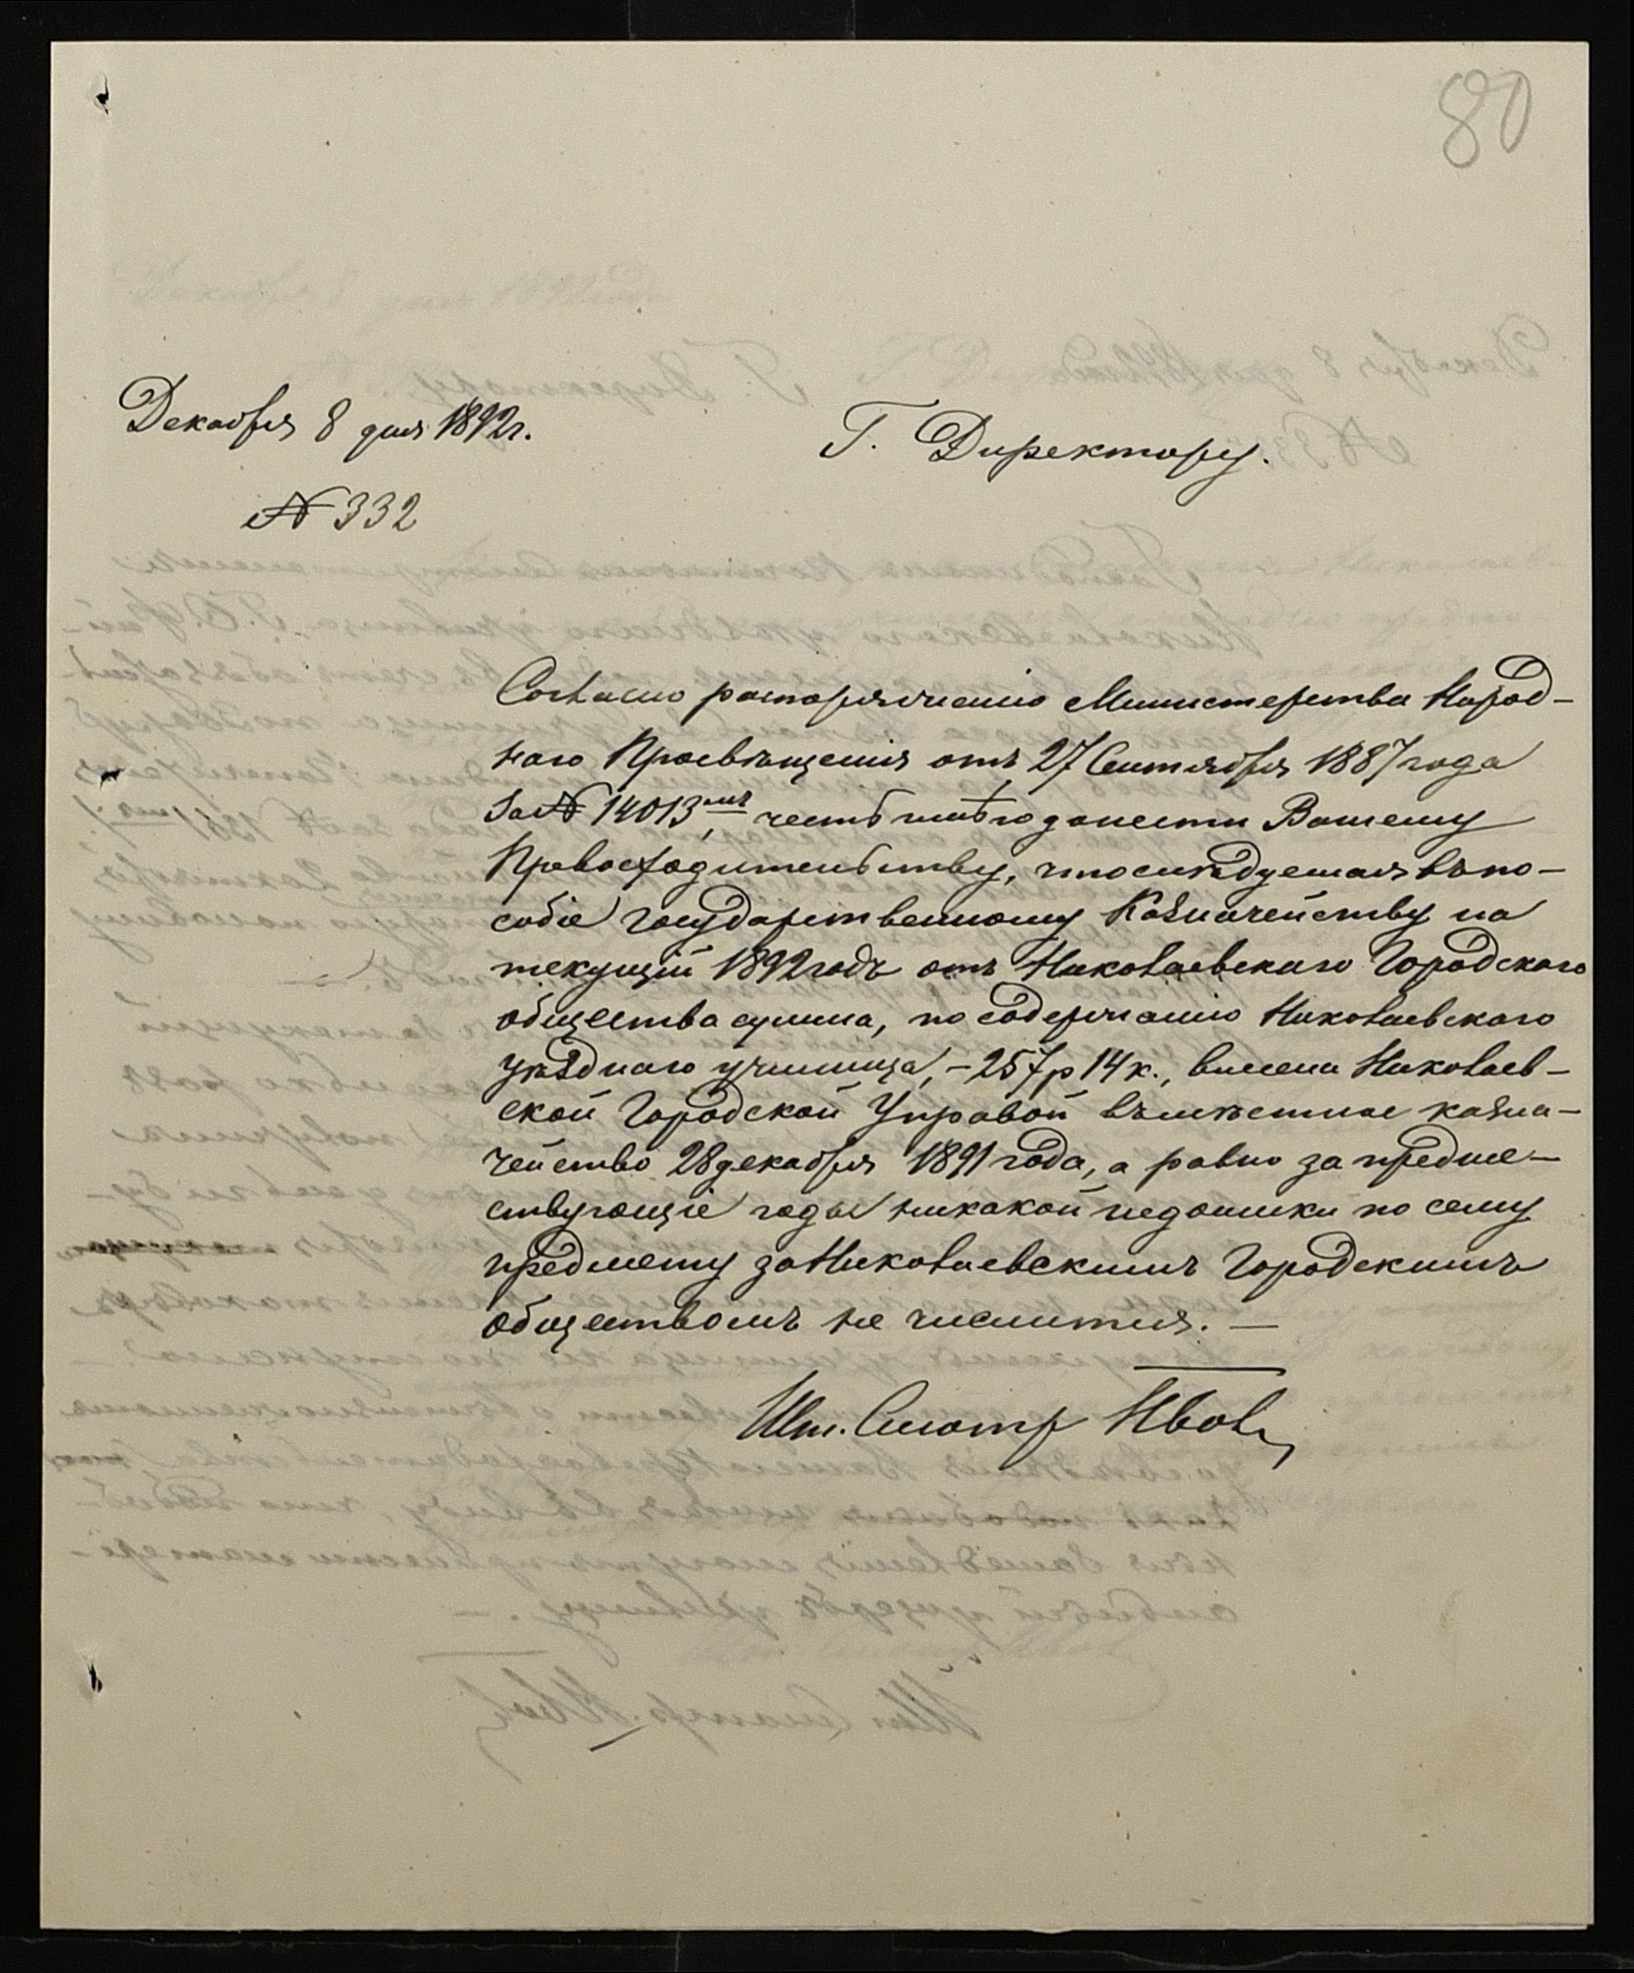 80
Декабря 8 дня 1892 г.
№ 332
Г. Директору.
Согласно распоряженію Министерства Народ-
наго Просвѣщенія отъ 27 Сентября 1887 года
за № 14013, честь имѣю донести Вашему
Превосходительству, что слѣдуемая въ по-
собіе Государственному Казначейству на
текущій 1892 годъ отъ Николаевскаго Городскаго
общества сумма, по содержанію Николаевскаго
уѣзднаго училища, - 257 р 14 к., внесена Николаев-
ской Городской Управой въ мѣстное казна-
чейство 28 декабря 1891 года, а равно за предше-
ствующіе годы никакой недоимки по сему
предмету за Николаевскимъ Городскимъ
обществомъ не числится. —
Шт. Смотр